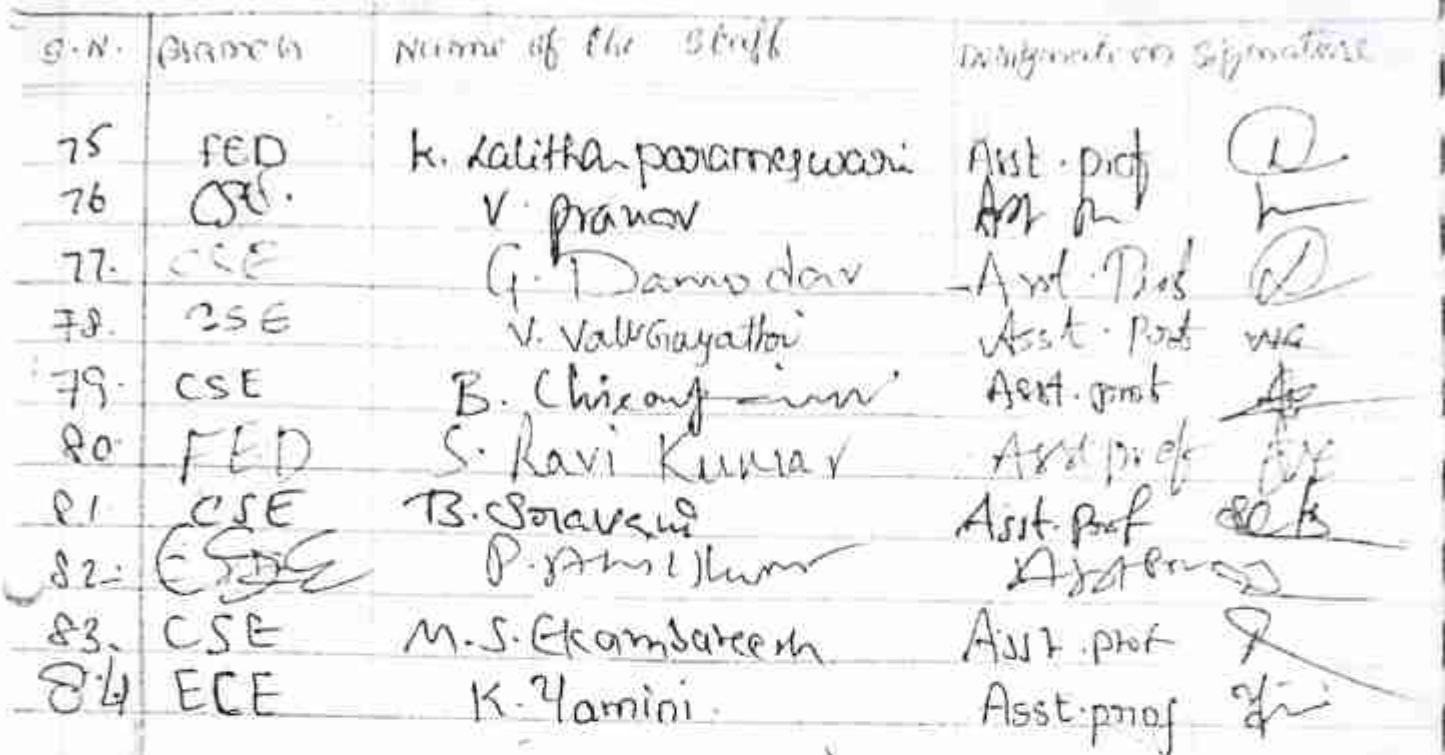 S.N. Branch Name of the Staff Designation Signature
75 FED K. Lalitha parameswari Asst. prof
76 V. pranav Asst
77. CSE G. Damodar Asst. Prof
78. CSE V. Valli Gayathri Asst. Prof VG
79. CSE B. Asst. prof
80 FED S. Ravi Kumar Asst prof
81. CSE B. Sravani Asst. Prof
82. P. Anil Kumar Asst
83. CSE M.S. Ekambareesh Asst. prof
84 ECE K. Yamini. Asst. prof